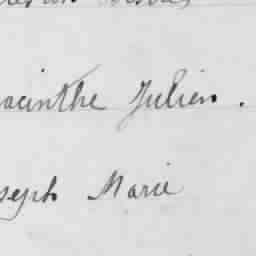 acinthe Julien.
seph Marie